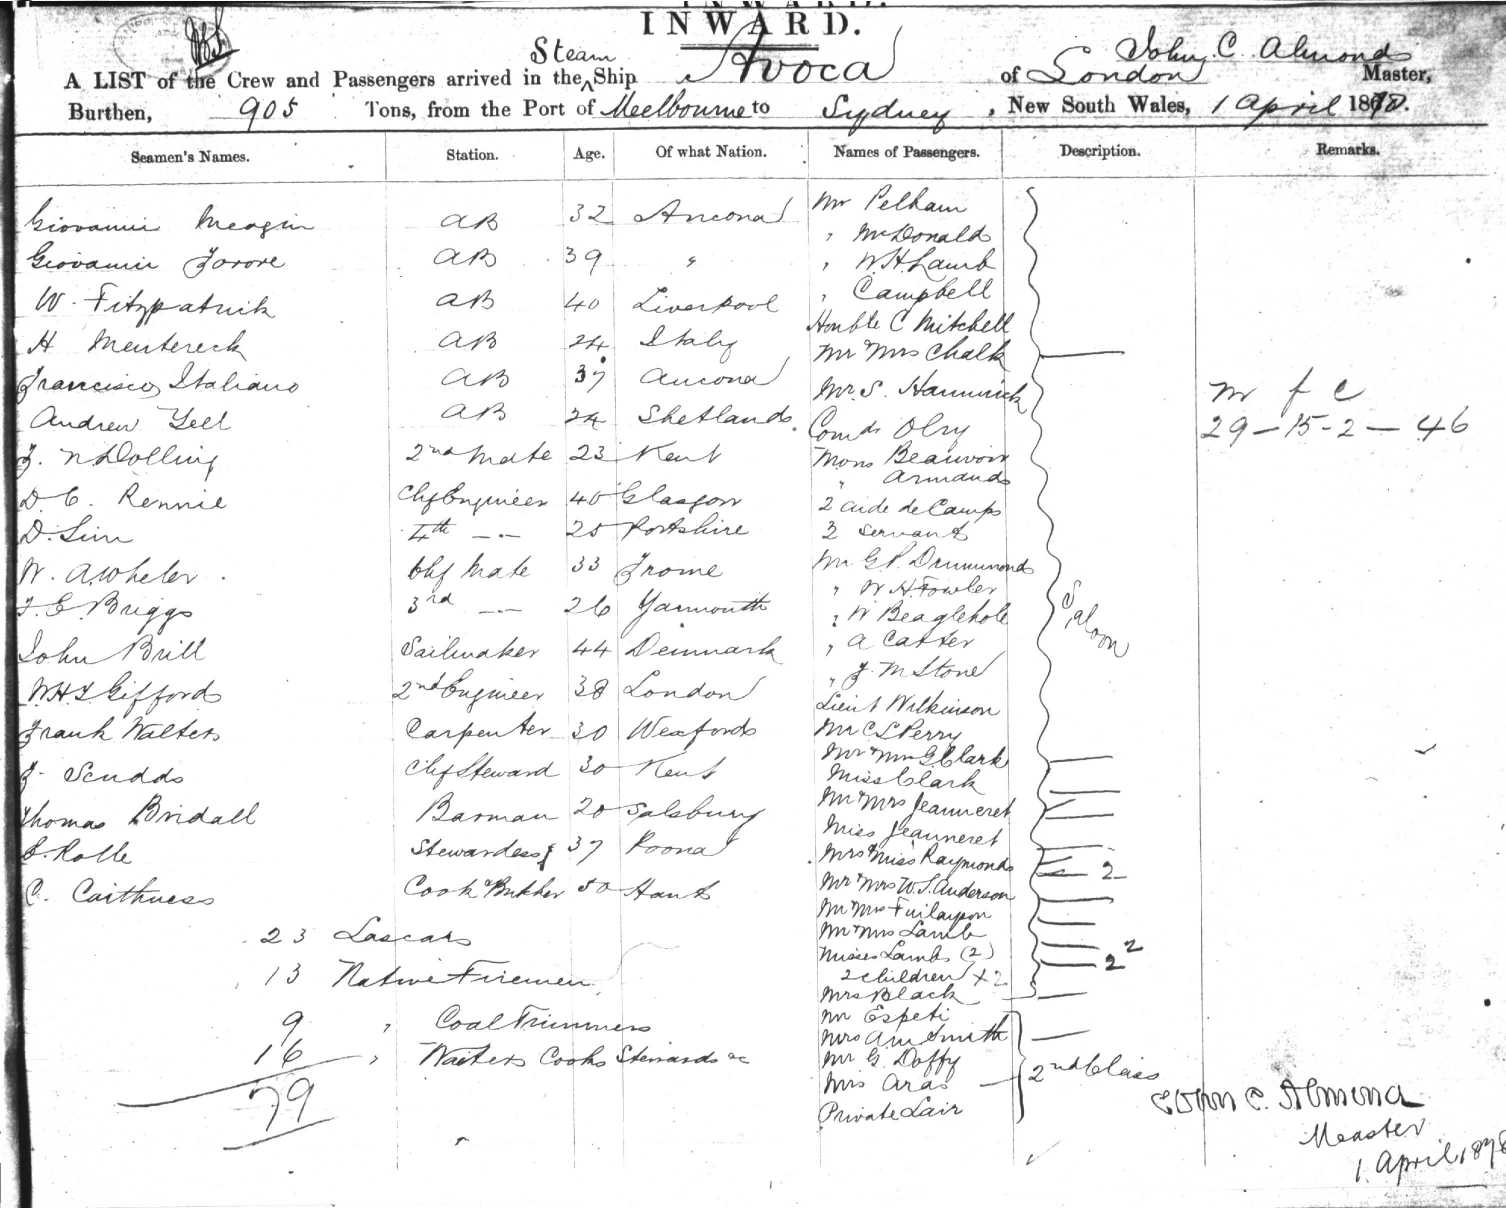 INWARD.
John C. Almond
Steam
A LIST of the Crew and Passengers arrived in the Ship Avoca of London Master,
Burthen, 905 Tons, from the Port of Meelbourne to Sydney, New South Wales, 1 April 1878.
Seamen's Names. Station. Age. Of what Nation. Names of Passengers. Description. Remarks.
Giovannie AB 32 Ancona Mr Pelham
" McDonald
Giovannie AB 39 " " W.H. Lamb
W. Fitzpatrick AB 40 Liverpool " Campbell
Honble C Mitchell
H AB 24 Italy Mr & Mrs Chalk
Francisco Italiano AB 37 Ancona Mr S. Hammrick
m f c
Andrew Yell AB 24 Shetlands. Comdr Olry
29-15-2-46
2nd Mate 23 Kent Mons Beauvoir
" Armand
D. C. Rennie Chf Engineer 40 Glasgow 2 aide de Camps
D. Sim 4th -"- 25 3 servants
W. A Wheler Chf Mate 33 Frome Mr G P. Drummond
" W H. Fowler
F. E. Briggs 3rd -"- 26 Yarmouth " W Beaglehole
Saloon
John Brill Sailmaker 44 Denmark " A Catter
" F. M Stone
W.H.F Gifford 2nd Engineer 38 London Lieut Wilkinson
Frank Walters Carpenter 30 Wexford Mr C L Perry
Mr & Mrs G. Clark
F. Scudds Chf Steward 30 Kent Miss Clark
Thomas Bridall Barman 20 Salsbury Mr & Mrs Jeanneret
Miss Jeanneret
E. Rolle Stewardess 37 Poona Mrs & Miss Raymond 2
C. Caithness Cook & Butcher 50 Hants Mr & Mrs W. S. Anderson
Mr & Mrs Finlayson
23 Lascars Mr & Mrs Lamb
Misses Lamb (2) 2
2
13 Native Firemen 2 Children X 2
Mrs Black
9 " Coal Trimmers Mr Espeti
Mrs A M Smith
16 " Waiters Cooks Stewards &c Mr G. Doffy
2nd Class
79 Mrs Aras
Private Lair
John C. Almond
Measter
1. April 1878